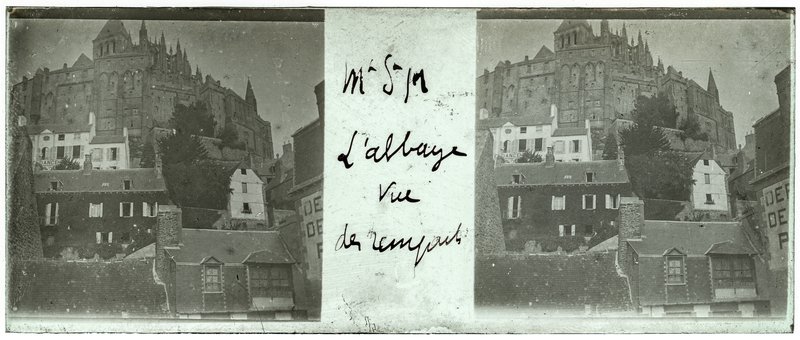 Mt St M
L'abbaye
Vue
des remparts
DE
DE